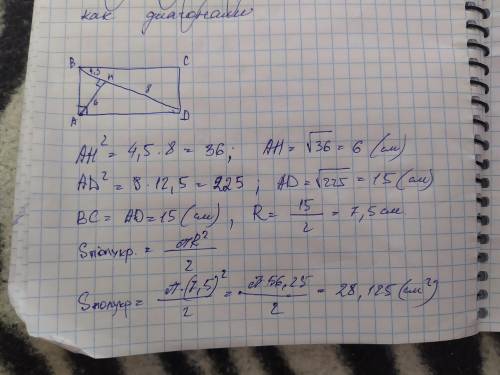 как диагонали
B 4,5 H C
8
6
A D
AH² = 4,5 · 8 = 36; AH = √36 = 6 (см)
AD² = 8 · 12,5 = 225; AD = √225 = 15 (см)
BC = AD = 15 (см), R = 15/2 = 7,5 см
Sполукр. = πR²/2
Sполукр = π·(7,5)²/2 = π·56,25/2 = 28,125 (см²)